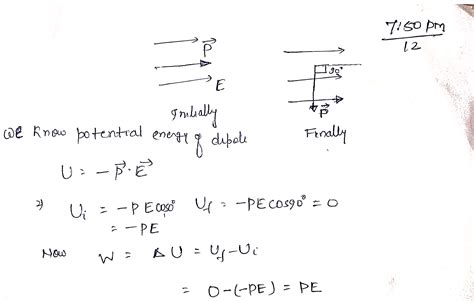 7:50 pm
12
P⃗
E
90°
P⃗
Initially
Finally
We know potential energy of dipole
U = - P⃗ · E⃗
⇒ Ui = -PE cos0° Uf = -PE cos90° = 0
= -PE
Now W = ΔU = Uf - Ui
= 0-(-PE) = PE